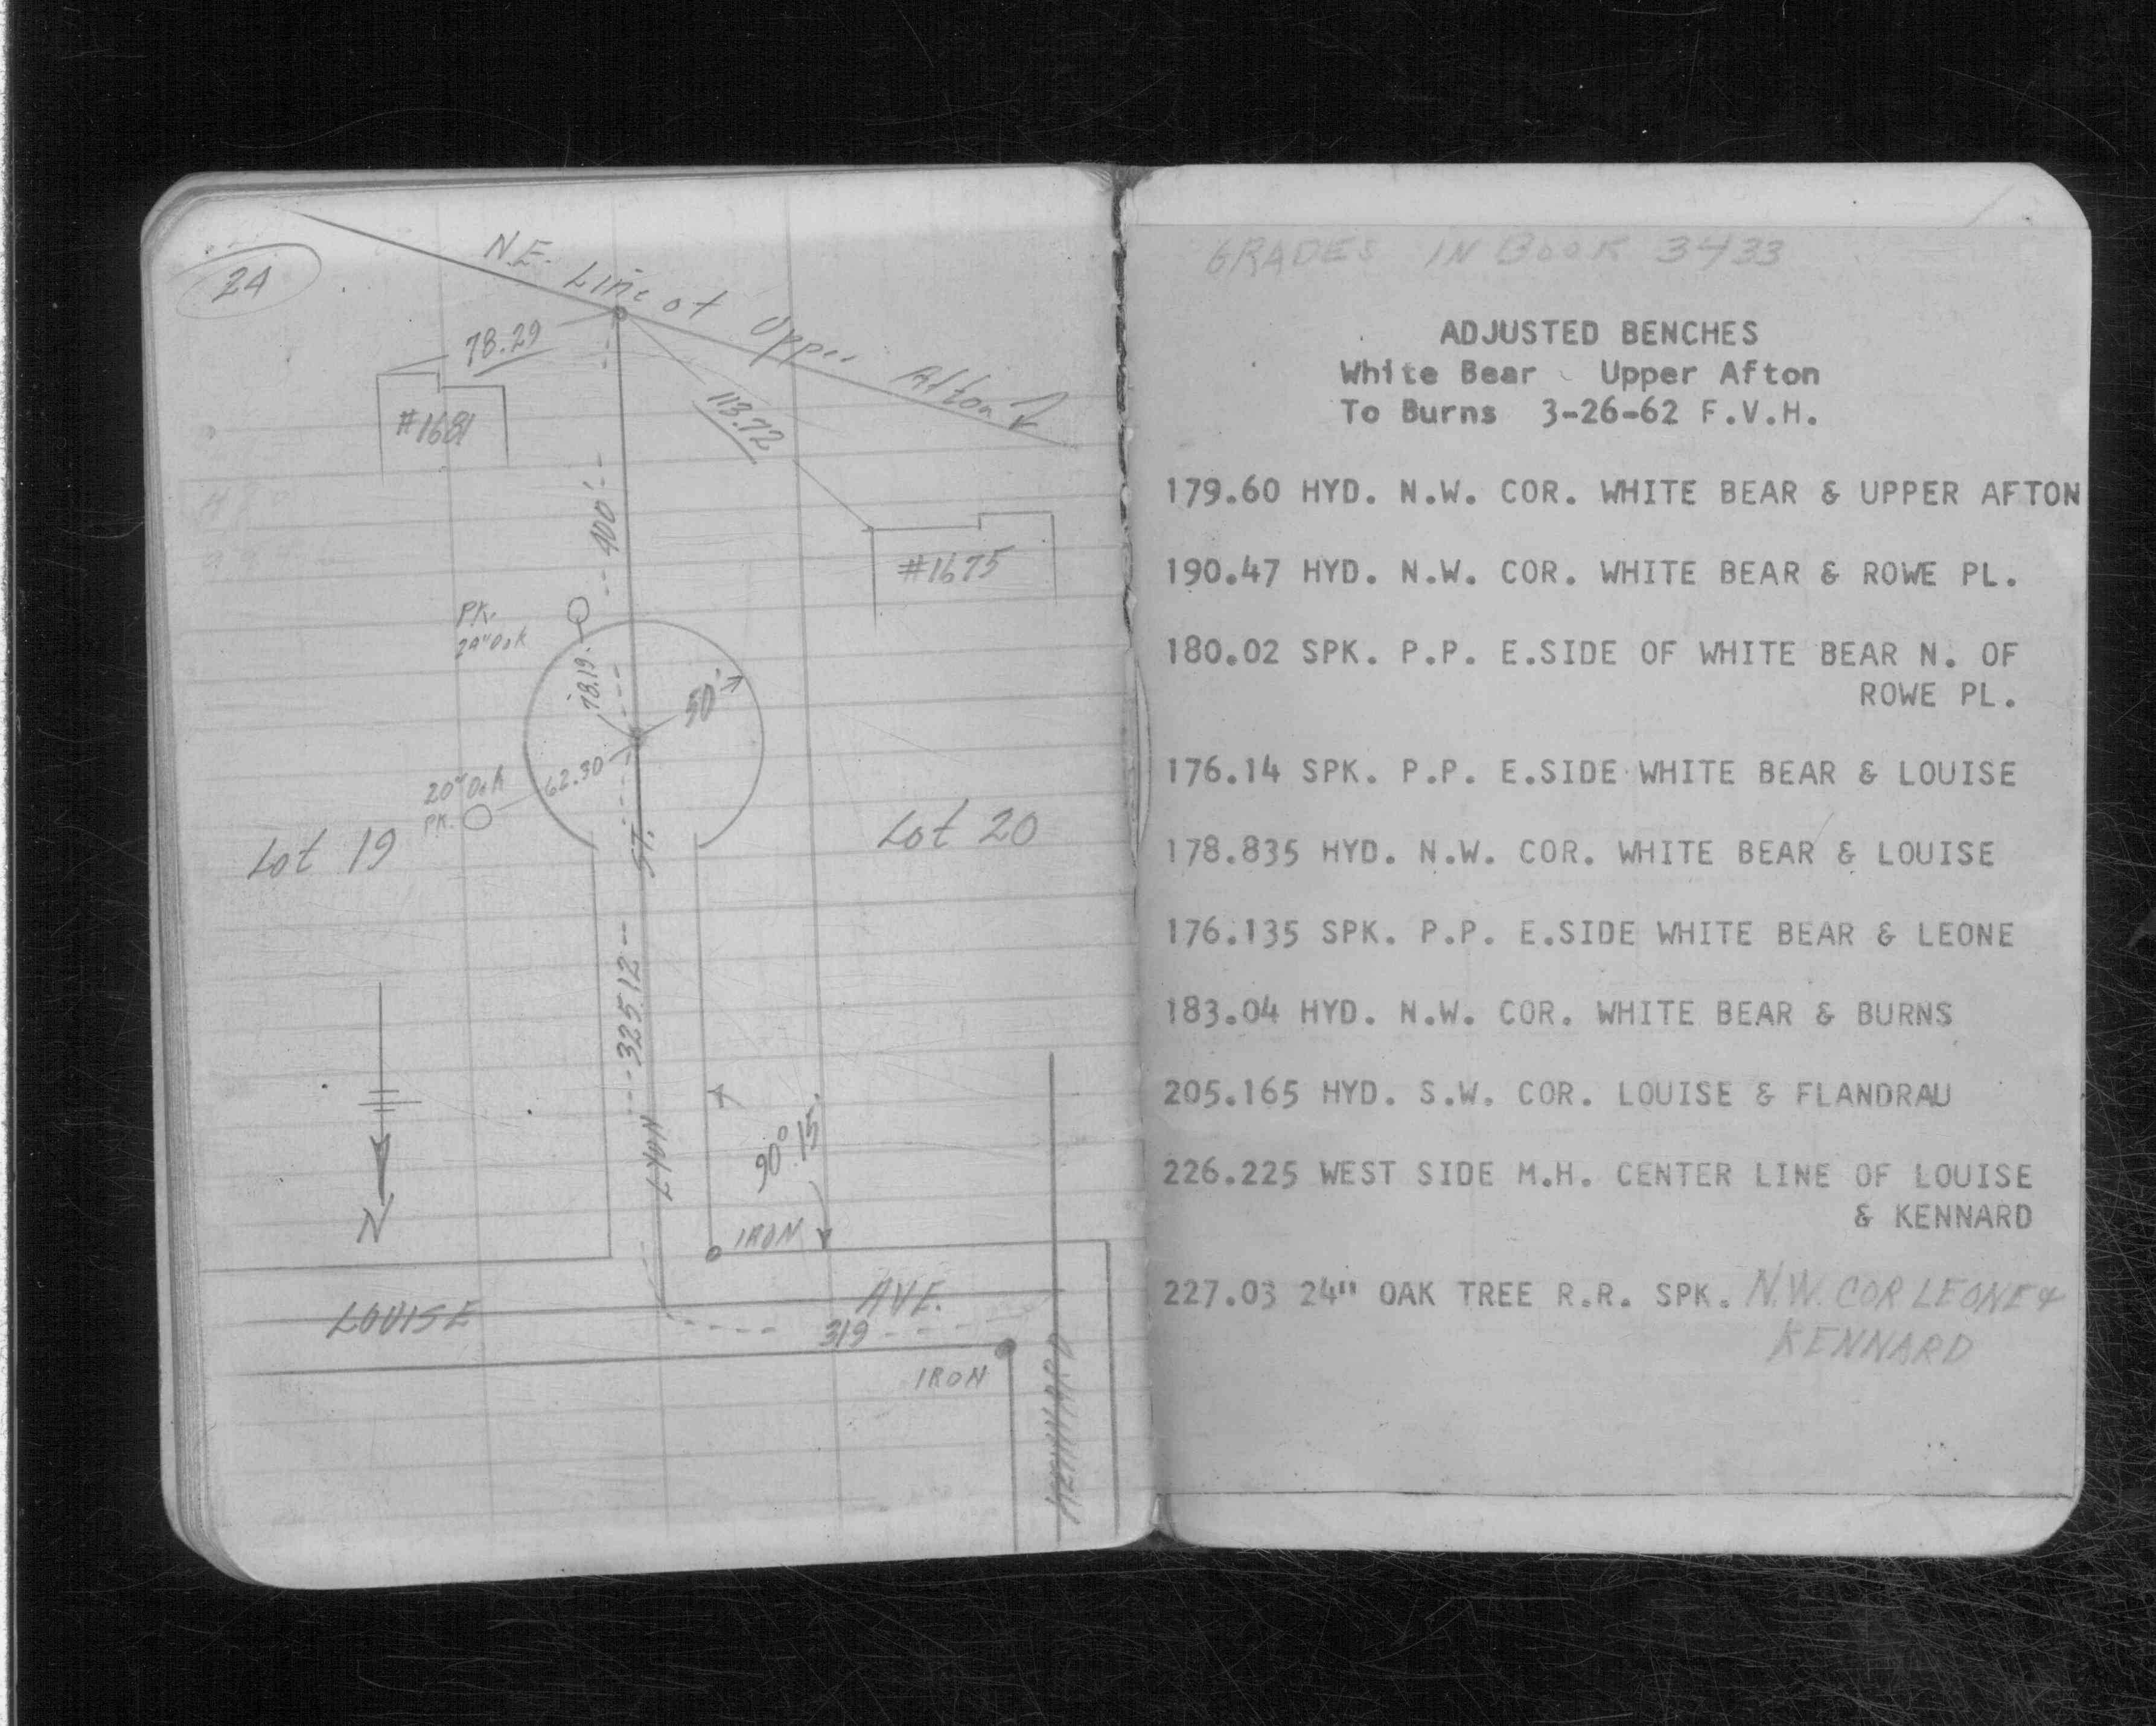 24
N.E. Line of Upper Afton
78.29
#1681
113.72
400'
#1675
PK.
20" Oak
78.19
50'
20" Oak
PK.
62.30
Lot 19
Lot 20
LYON ST.
325.12
90° 15'
N
IRON
LOUISE AVE.
319
IRON
KENNARD
GRADES IN BOOK 3433
ADJUSTED BENCHES
White Bear Upper Afton
To Burns 3-26-62 F.V.H.
179.60 HYD. N.W. COR. WHITE BEAR & UPPER AFTON
190.47 HYD. N.W. COR. WHITE BEAR & ROWE PL.
180.02 SPK. P.P. E.SIDE OF WHITE BEAR N. OF
ROWE PL.
176.14 SPK. P.P. E.SIDE WHITE BEAR & LOUISE
178.835 HYD. N.W. COR. WHITE BEAR & LOUISE
176.135 SPK. P.P. E.SIDE WHITE BEAR & LEONE
183.04 HYD. N.W. COR. WHITE BEAR & BURNS
205.165 HYD. S.W. COR. LOUISE & FLANDRAU
226.225 WEST SIDE M.H. CENTER LINE OF LOUISE
& KENNARD
227.03 24" OAK TREE R.R. SPK. N.W. COR LEONE &
KENNARD